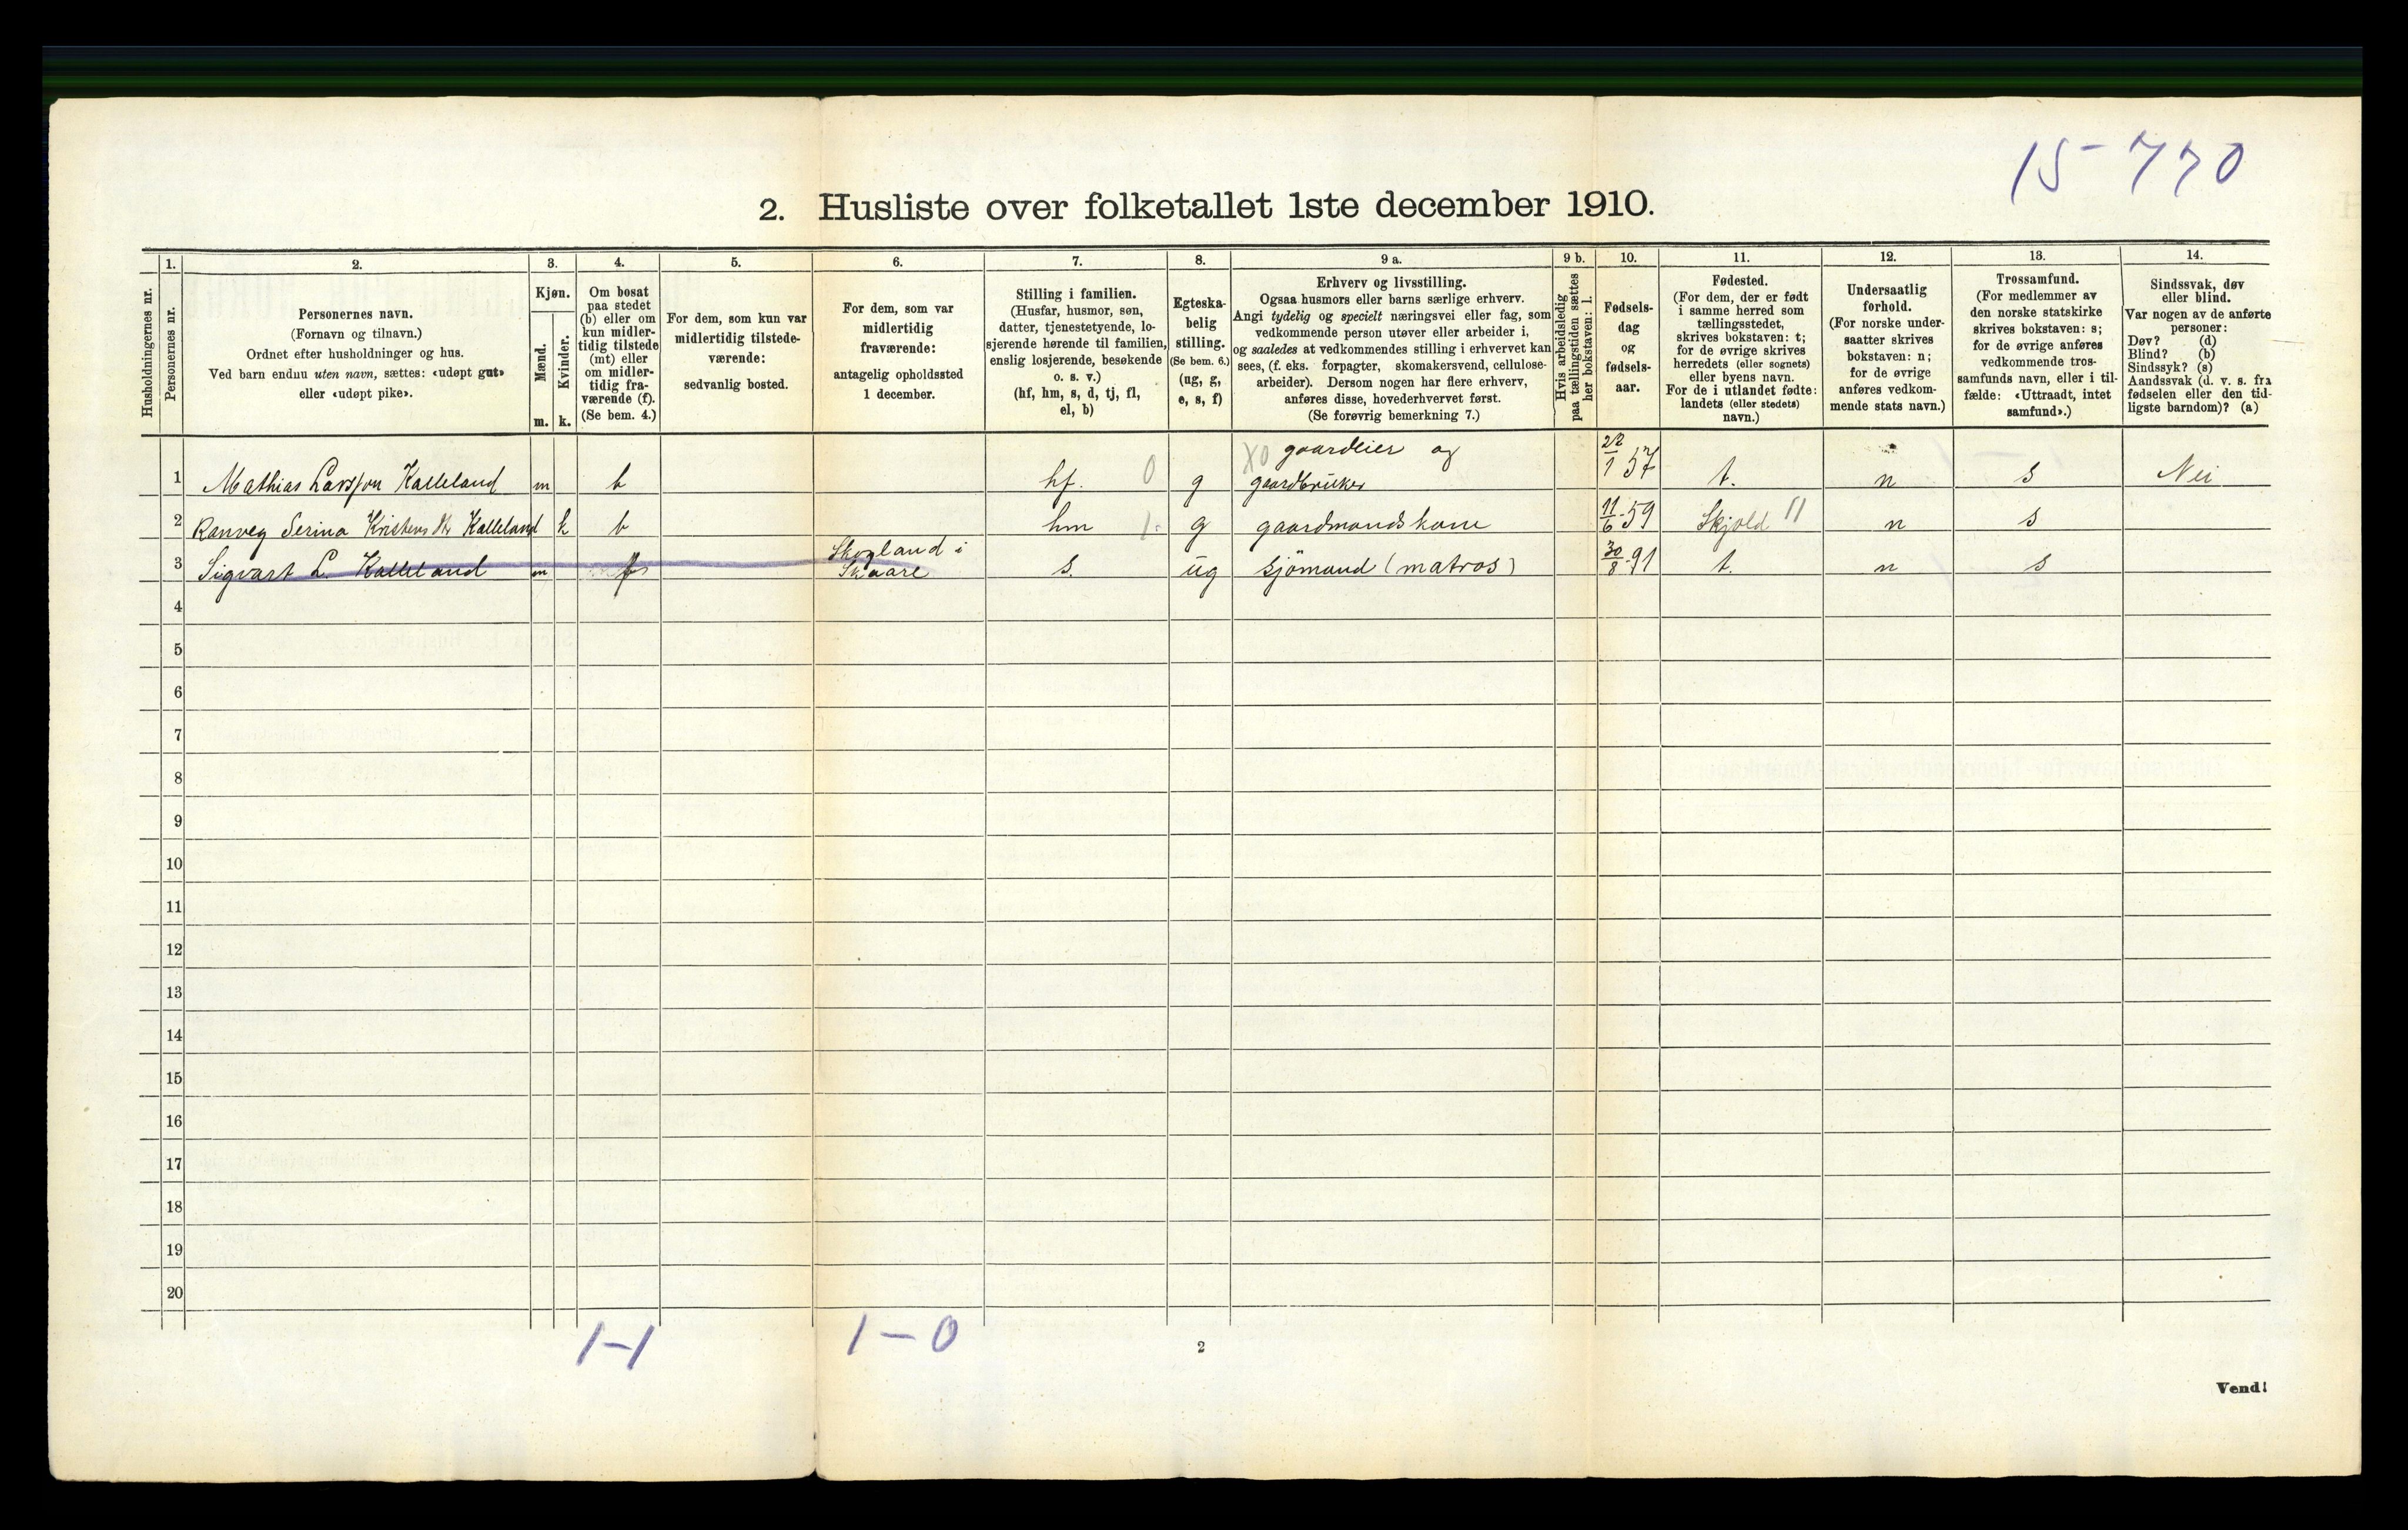 15-770
2. Husliste over folketallet 1ste december 1910.
Husholdningernes nr.
1.
Personernes nr.
2.
Personernes navn.
(Fornavn og tilnavn.)
Ordnet efter husholdninger og hus.
Ved barn endnu uten navn, sættes: «udøpt gut»
eller «udøpt pike».
3.
Kjøn.
Mænd.
Kvinder.
m. k.
4.
Om bosat
paa stedet
(b) eller om
kun midler-
tidig tilstede
(mt) eller
om midler-
tidig fra-
værende (f).
(Se bem. 4.)
5.
For dem, som kun var
midlertidig tilstede-
værende:
sedvanlig bosted.
6.
For dem, som var
midlertidig
fraværende:
antagelig opholdssted
1 december.
7.
Stilling i familien.
(Husfar, husmor, søn,
datter, tjenestetyende, lo-
sjerende hørende til familien,
enslig losjerende, besøkende
o. s. v.)
(hf, hm, s, d, tj, fl,
el, b)
8.
Egteska-
belig
stilling.
(Se bem. 6.)
(ug, g,
e, s, f)
9 a.
Erhverv og livsstilling.
Ogsaa husmors eller barns særlige erhverv.
Angi tydelig og specielt næringsvei eller fag, som
vedkommende person utøver eller arbeider i,
og saaledes at vedkommendes stilling i erhvervet kan
sees, (f. eks. forpagter, skomakersvend, cellulose-
arbeider). Dersom nogen har flere erhverv,
anføres disse, hovederhvervet først.
(Se forøvrig bemerkning 7.)
9 b.
Hvis arbeidsledig
paa tællingstiden sættes
her bokstaven: l.
10.
Fødsels-
dag
og
fødsels-
aar.
11.
Fødested.
(For dem, der er født
i samme herred som
tællingsstedet,
skrives bokstaven: t;
for de øvrige skrives
herredets (eller sognets)
eller byens navn.
For de i utlandet fødte:
landets (eller stedets)
navn.)
12.
Undersaatlig
forhold.
(For norske under-
saatter skrives
bokstaven: n;
for de øvrige
anføres vedkom-
mende stats navn.)
13.
Trossamfund.
(For medlemmer av
den norske statskirke
skrives bokstaven: s;
for de øvrige anføres
vedkommende tros-
samfunds navn, eller i til-
fælde: «Uttraadt, intet
samfund».)
14.
Sindssvak, døv
eller blind.
Var nogen av de anførte
personer:
Døv? (d)
Blind? (b)
Sindssyk? (s)
Aandssvak (d. v. s. fra
fødselen eller den tid-
ligste barndom)? (a)
1 Mathias Larsson Kalleland m b hf. 0 g X0 gaardeier og gaardbruker 22/1 57 t. n s Nei
2 Ranveg Serina Kristens Dt. Kalleland k b hm 1. g gaardmandskone 11/6 59 Skjold 11 n s
3 Sigvart L. Kalleland m f Skogland i Skaare s. ug sjömand (matros) 30/8 91 t. n s
4
5
6
7
8
9
10
11
12
13
14
15
16
17
18
19
20
1-1
1-0
2
Vend!